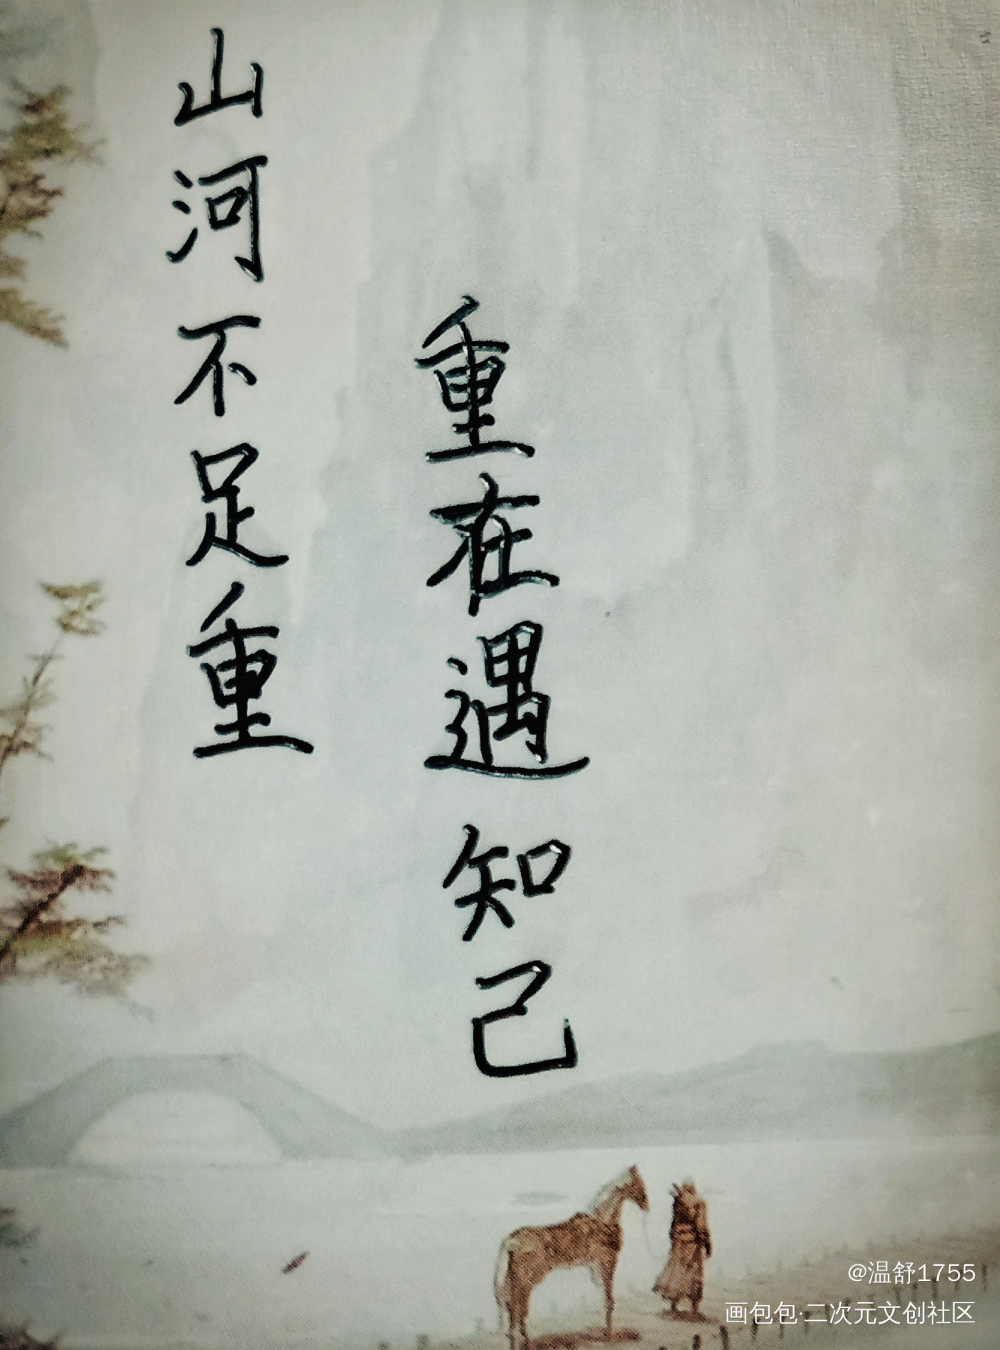 山河不足重
重在遇知己
@温舒1755
画包包·二次元文创社区